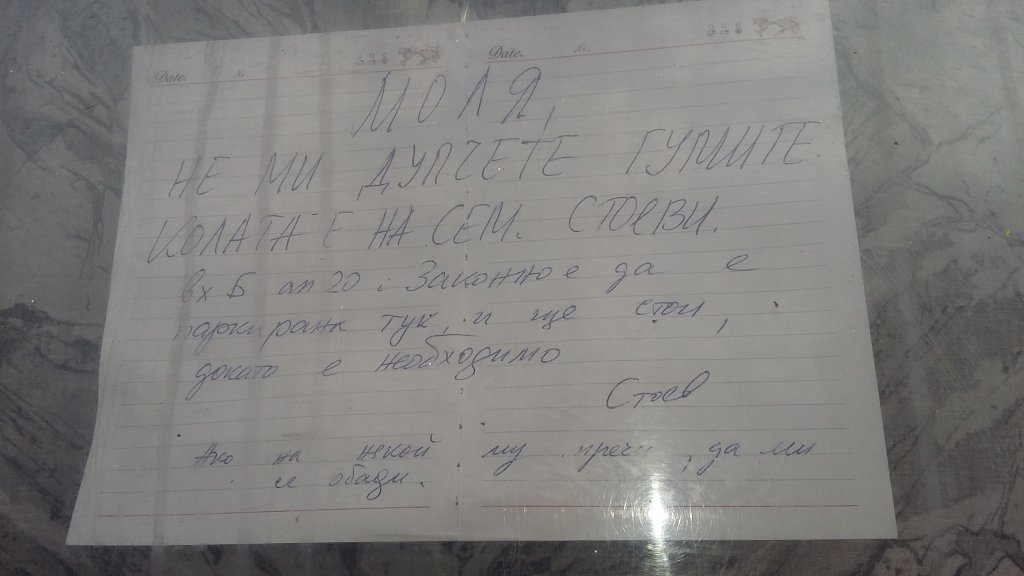 Date. № Date. №
МОЛЯ,
НЕ МИ ДУПЧЕТЕ ГУМИТЕ.
КОЛАТА Е НА СЕМ. СТОЕВИ.
вх Б ап 20. Законно е да е
паркирана тук, и ще стои,
докато е необходимо
Стоев
Ако на некой му пречи, да ми
се обади.